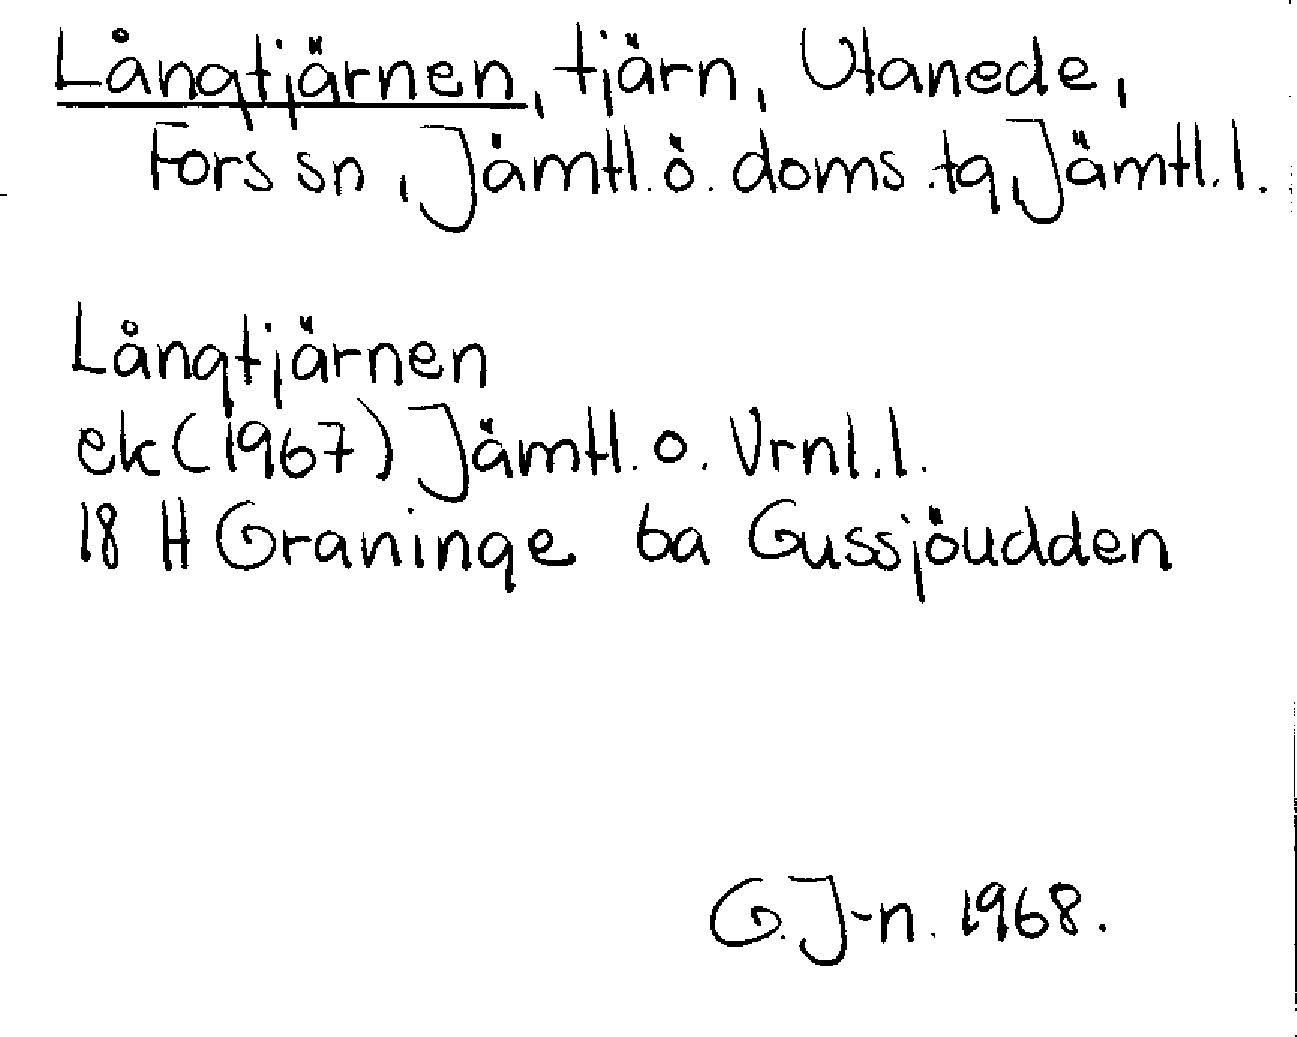 Långtjärnen, tjärn, Utanede,
Fors sn, Jämtl. ö. doms. tg, Jämtl. l.
Långtjärnen
ek (1967) Jämtl. o. Vrnl. l.
18 H Graninge 6a Gussjöudden
G. J-n. 1968.